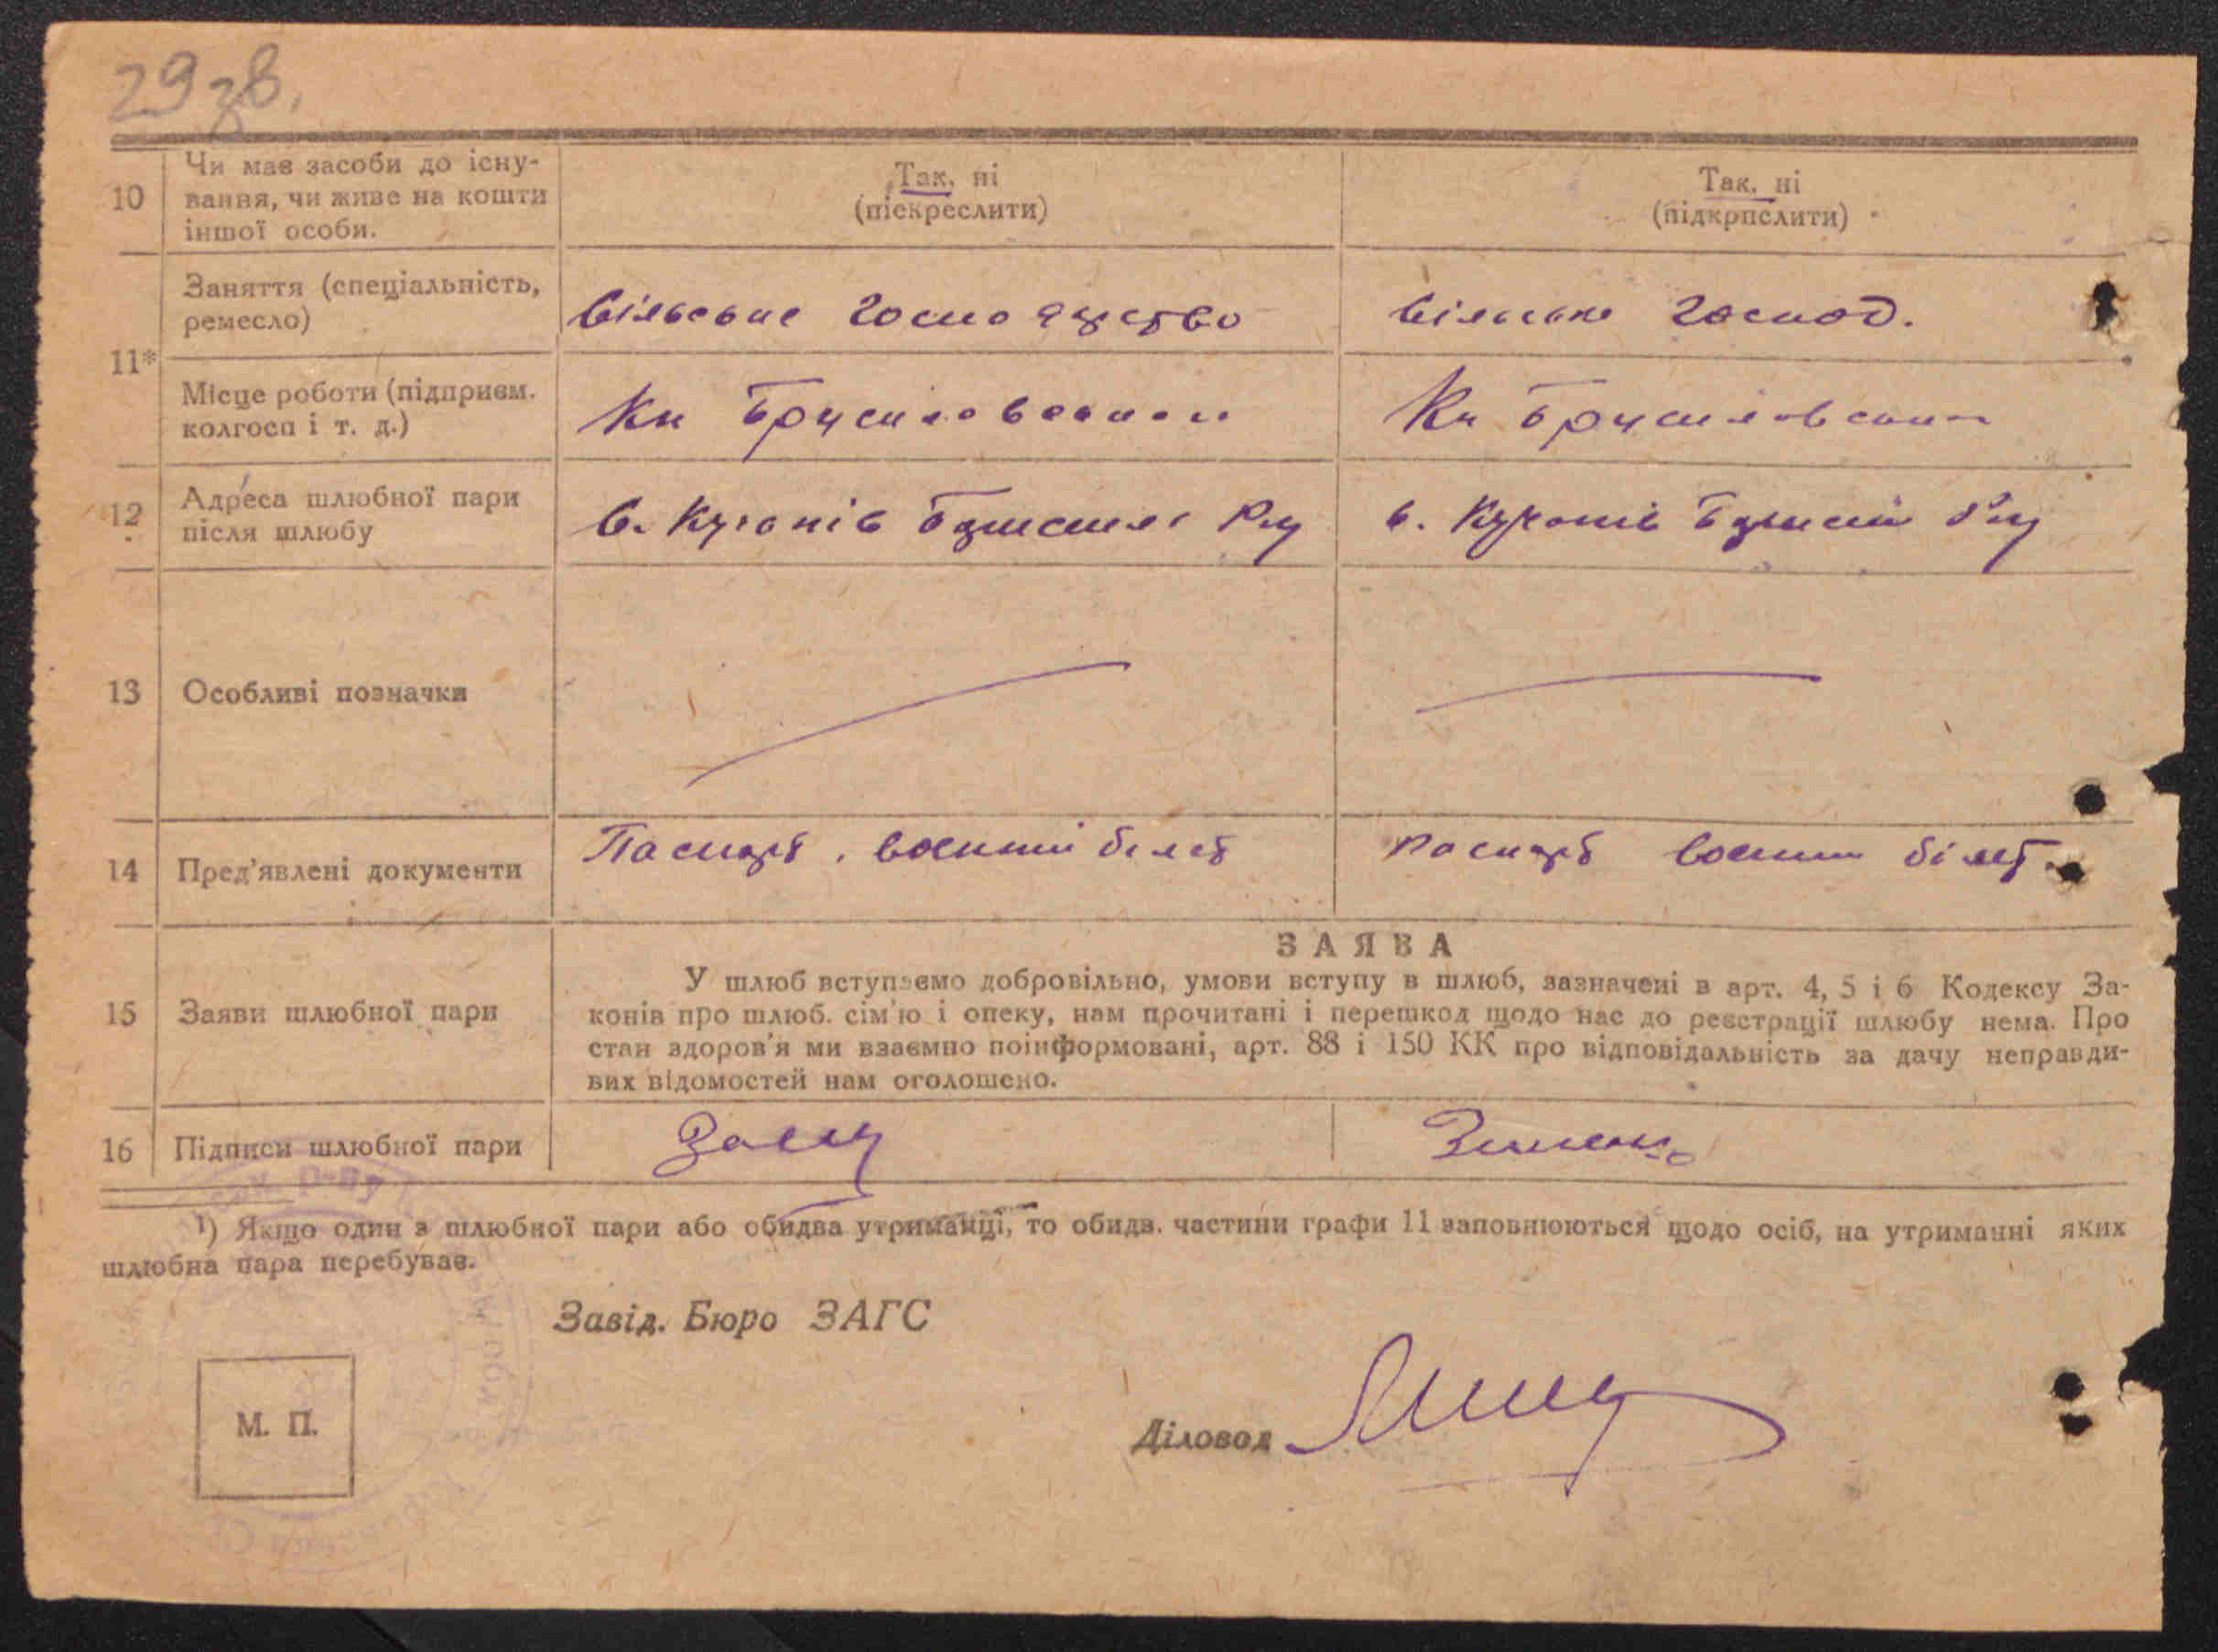 29 38.
10
Чи має засоби до існу-
вання, чи живе на кошти
іншої особи.
Так, ні
(піскреслити)
Так, ні
(підкрпслити)
11*
Заняття (спеціальність,
ремесло)
сільське господарство
сільське господ.
Місце роботи (підприєм.
колгосп і т. д.)
Кп
Кп
12
Адреса шлюбної пари
після шлюбу
с.
с.
13
Особливі позначки
14
Пред'явлені документи
Паспорт, воєнний білет
паспорт воєнний білет
15
Заяви шлюбної пари
ЗАЯВА
У шлюб вступаємо добровільно, умови вступу в шлюб, зазначені в арт. 4, 5 і 6 Кодексу За-
конів про шлюб. сім'ю і опеку, нам прочитані і перешкод щодо нас до реєстрації шлюбу нема. Про
стан здоров'я ми взаємно поінформовані, арт. 88 і 150 КК про відповідальність за дачу неправди-
вих відомостей нам оголошено.
16
Підписи шлюбної пари
¹) Якщо один з шлюбної пари або обидва утриманці, то обидв. частини графи 11 заповнюються щодо осіб, на утриманні яких
шлюбна пара перебуває.
Завід. Бюро ЗАГС
М. П.
Діловод